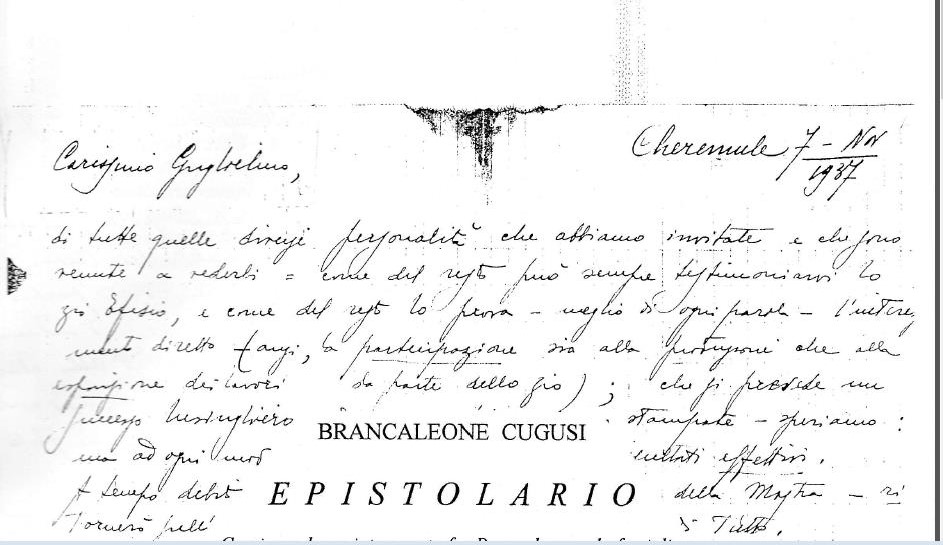 Cheremule 7 - Nov
1937
Carissimo Guglielmo,
di tutte quelle diverse personalità che abbiamo invitate e che sono
venute a vederli = come del resto può sempre testimoniarvi lo
zio Efisio, e come del resto lo prova - meglio di ogni parola - l'interes
diretto - (anzi, la partecipazione sia alla che alla
dei lavori da parte dello zio) ; che si prevede un
lusinghiero stampate - speriamo :
BRANCALEONE CUGUSI
ma ad ogni mod effettivi.
A tempo debit della Mostra - vi
EPISTOLARIO
Tornerò di Tutto.